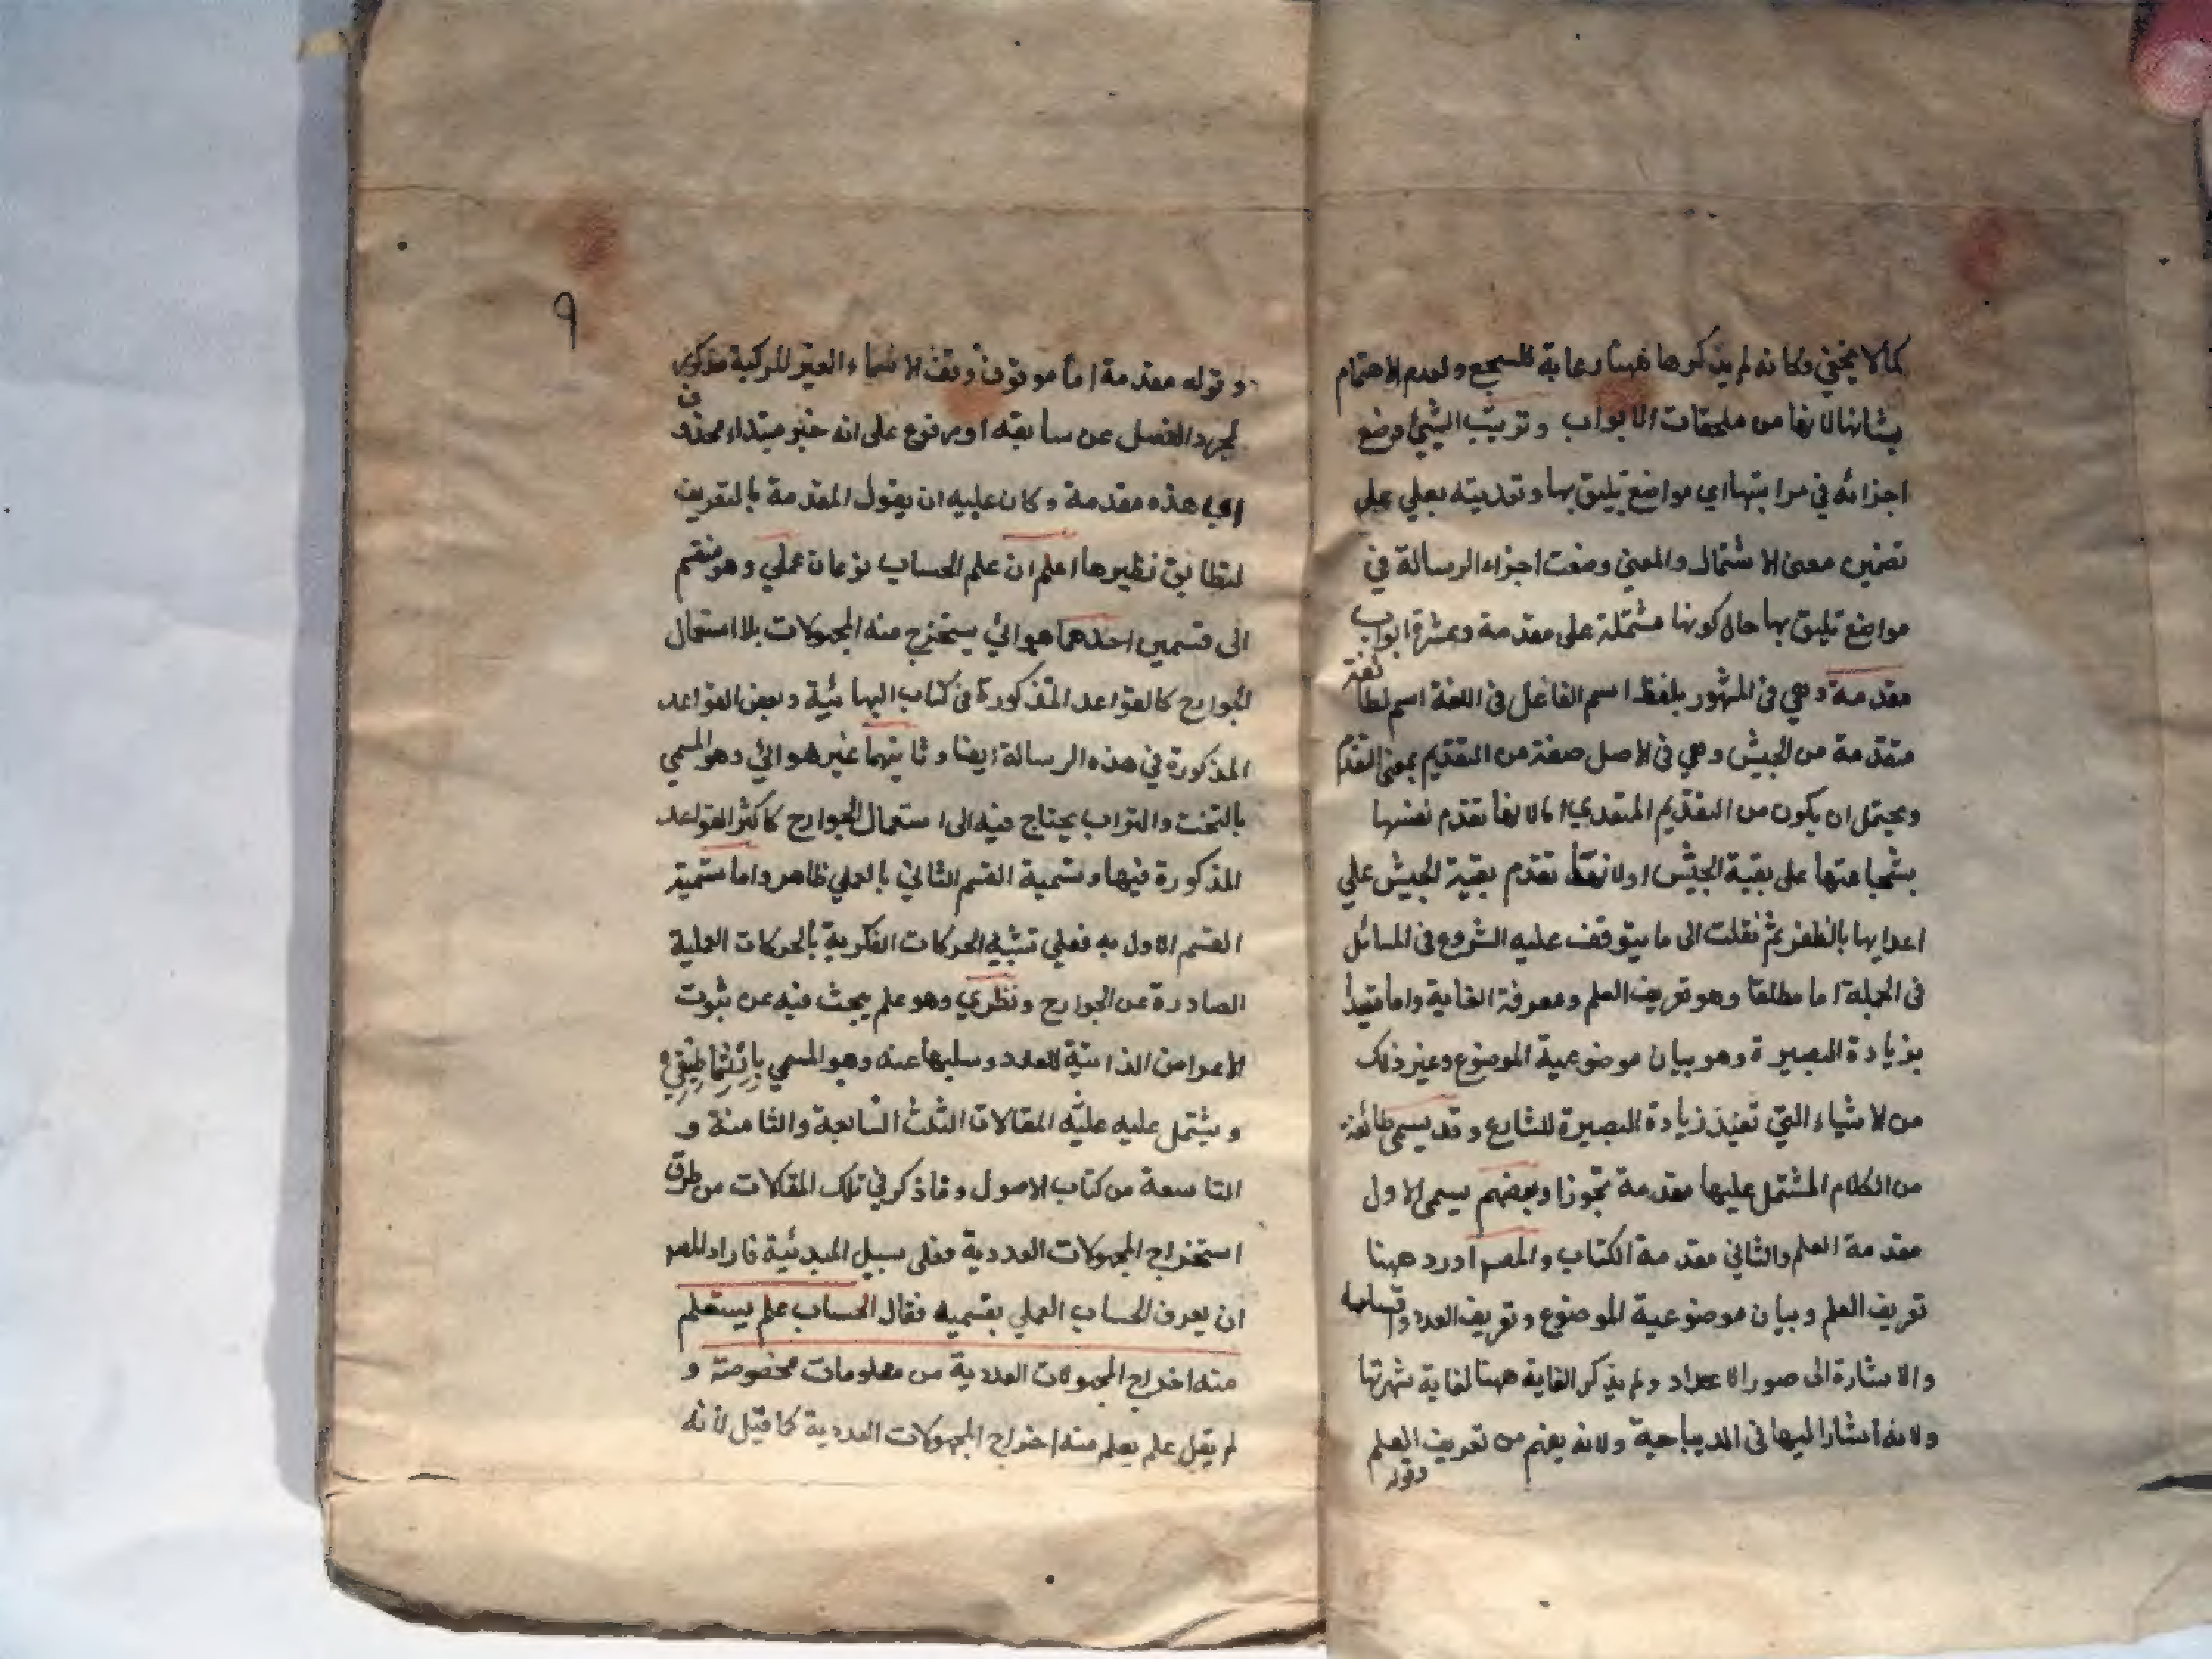 كما لا يخفى وكانه لم يذكرها ههنا رعاية للسجع ولعدم الاهتمام
بشانها لانها من ملحقات الابواب وترتيب الشيئ وضع
اجزائه في مراتبها اي مواضع يليق بها وتعديته بعلي علي
تضمين معنى الاشتمال والمعني وضعت اجزاء الرسالة في
مواضع تليق بها حال كونها مشتملة على مقدمة وعشرة ابواب
مقدمة وهي في المشهور بلفظ اسم الفاعل في اللغة اسم لطائفة
متقدمة من الجيش وهي في الاصل صفة من التقديم بمعنى التقدم
ويحتمل ان يكون من التقديم المتعدي اما لانها تقدم نفسها
بشجاعتها على بقية الجيش او لانها تقدم بقية الجيش علي
اعدايها بالظفر ثم نقلت الى ما يتوقف عليه الشروع في المسائل
في الجملة اما مطلقا وهو تعريف العلم ومعرفة الغاية واما مقيدا
بزيادة البصيرة وهو بيان موضوعية الموضوع وغير ذلك
من الاشياء التي تفيد زيادة البصيرة للشارع وقد يسمى طائفة
من الكلام المشتمل عليها مقدمة تجوزا وبعضهم يسمى الاول
مقدمة العلم والثاني مقدمة الكتاب والمصـ اورد ههنا
تعريف العلم وبيان موضوعية الموضوع وتعريف العدد واقسامه
والاشارة الى صور الاعداد ولم يذكر الغاية ههنا لغاية شهرتها
ولانه اشار اليها في الديباجية ولانه يفهم من تعريف العلم
وقوله
٩
وقوله مقدمة اما موقوف وقف الاسماء الغير المركبة مذكور
لمجرد الفصل عن سابقه او مرفوع على انه خبر مبتداء محذوف
اي هذه مقدمة وكان عليه ان يقول المقدمة بالتعريف
لتطابق نظيرها اعلم ان علم الحساب نوعان عملي وهو منقسم
الى قسمين احدهما هوائي يستخرج منه المجهولات بلا استعمال
الجوارح كالقواعد المذكورة في كتاب البهائية وبعض القواعد
المذكورة في هذه الرسالة ايضا وثانيهما غير هوائي وهو المسمي
بالتخت والتراب يحتاج فيه الى استعمال الجوارح كاكثر القواعد
المذكورة فيها وتسمية القسم الثاني بالعملي ظاهر واما تسمية
القسم الاول به فعلي تشبيه الحركات الفكرية بالحركات العملية
الصادرة عن الجوارح ونظري وهو علم يبحث فيه عن ثبوت
الاعراض الذاتية للعدد وسلبها عنه وهو المسمي بارثماطيقي
ويشتمل عليه عليه المقالات الثلث السابعة والثامنة و
التاسعة من كتاب الاصول وما ذكر في تلك المقالات من طرق
استخراج المجهولات العددية فعلى سبيل المبدئية فاراد المصـ
ان يعرف الحساب العملي بقسميه فقال الحساب علم يستعلم
منه اخراج المجهولات العددية من معلومات مخصوصة و
لم يقل علم يعلم منه اخراج المجهولات العددية كما قيل لانه